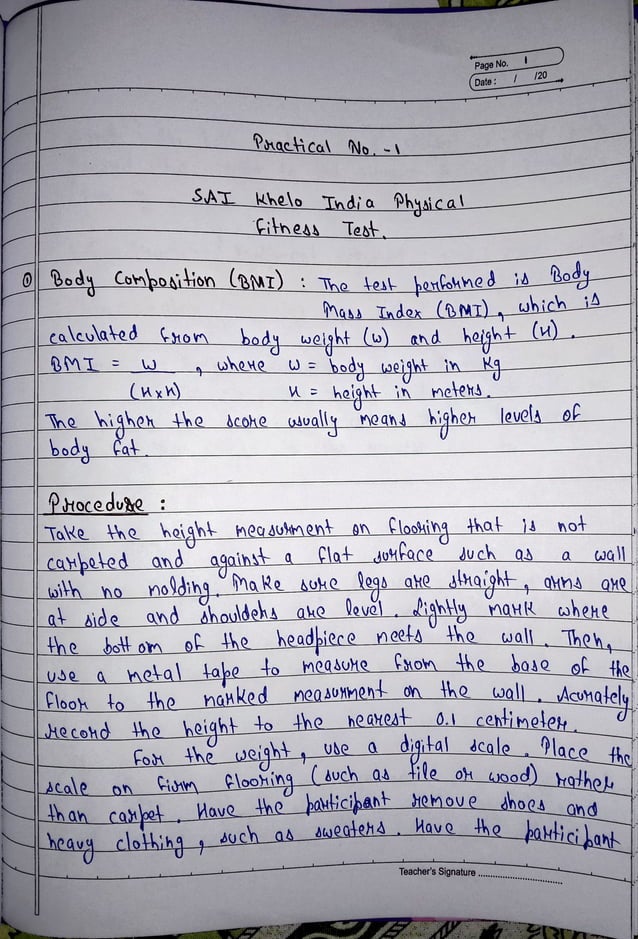 Page No. 1
Date: / /20
Practical No. -1
SAI Khelo India Physical
Fitness Test.
① Body Composition (BMI) : The test performed is Body
Mass Index (BMI), which is
calculated from body weight (w) and height (H).
BMI = w , where w = body weight in kg
(HxH) H = height in meters.
The higher the score usually means higher levels of
body fat.
Procedure :
Take the height measurment on flooring that is not
carpeted and against a flat surface such as a wall
with no molding. Make sure legs are straight, arms are
at side and shoulders are level. Lightly mark where
the bottom of the headpiece meets the wall. Then,
use a metal tape to measure from the base of the
floor to the marked measurment on the wall. Acurately
record the height to the nearest 0.1 centimeter.
For the weight, use a digital scale. Place the
scale on firm flooring (such as tile or wood) rather
than carpet. Have the participant remove shoes and
heavy clothing, such as sweaters. Have the participant
Teacher's Signature ..............................